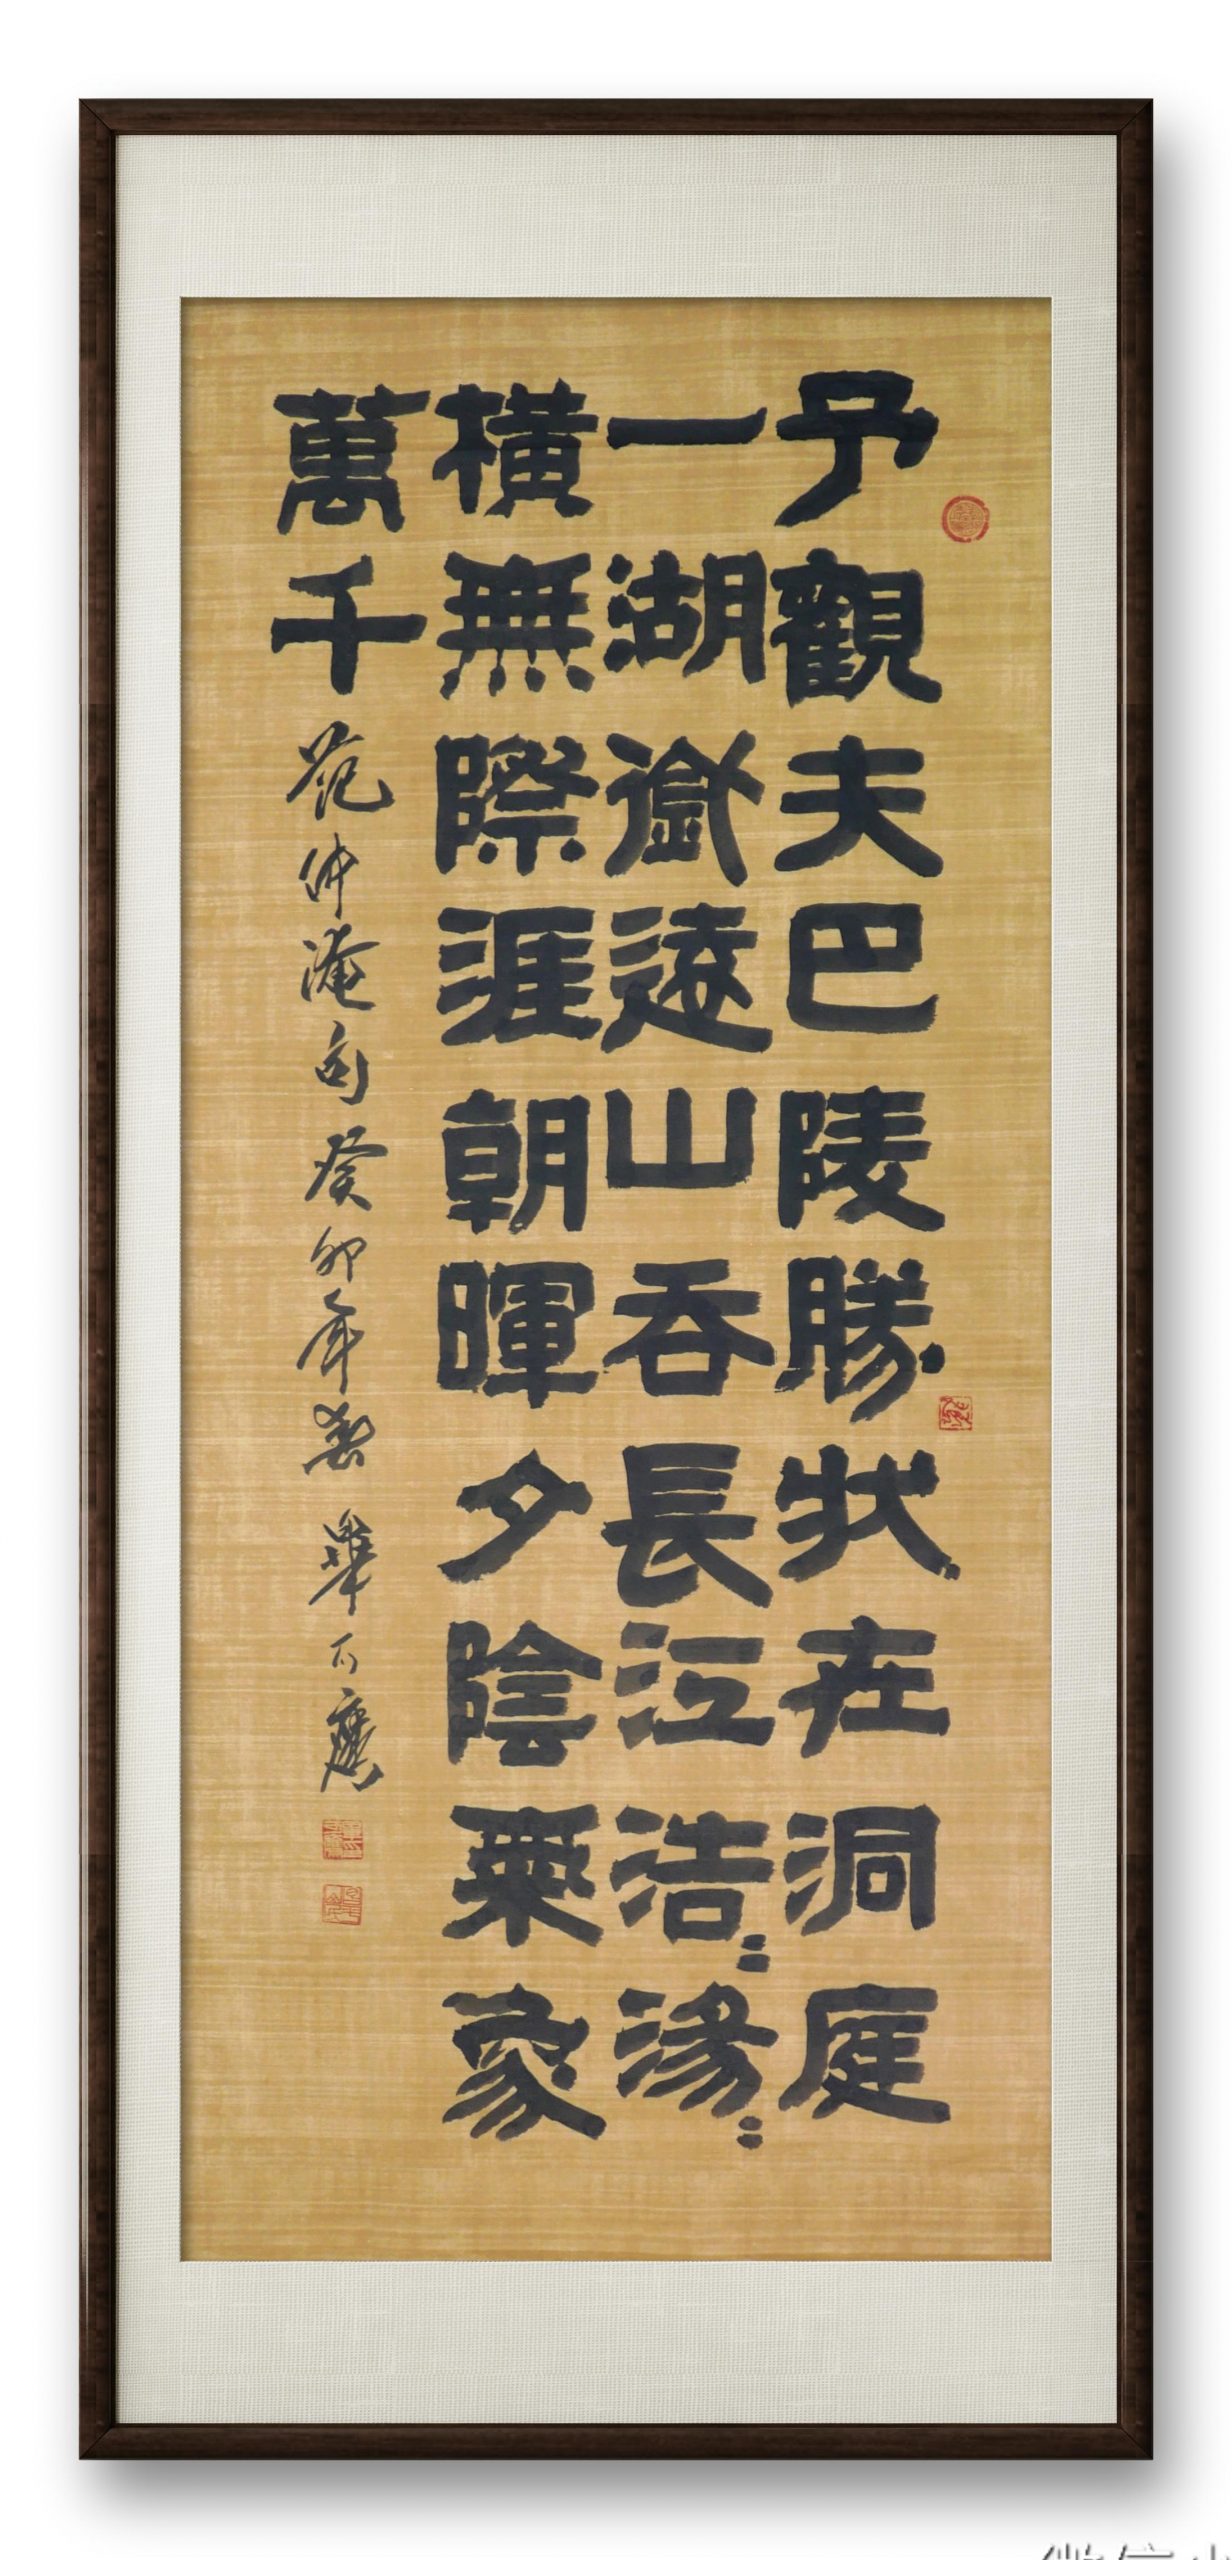 予觀夫巴陵勝狀在洞庭
一湖銜遠山吞長江浩〻湯〻
橫無際涯朝暉夕陰氣象
萬千 范仲淹句癸卯年